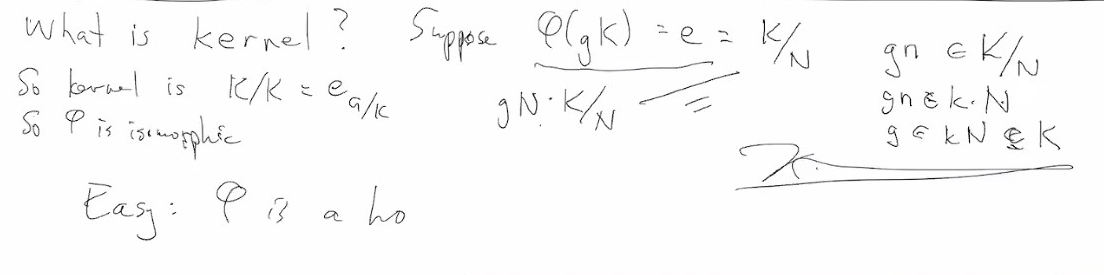 What is kernel? Suppose φ(gK) = e = K/N
gN·K/N =
gn ∈ K/N
gn ∈ k·N
g ∈ kN ⊆ K
So kernel is K/K = e_{G/K}
So φ is isomorphic
Easy: φ is a ho